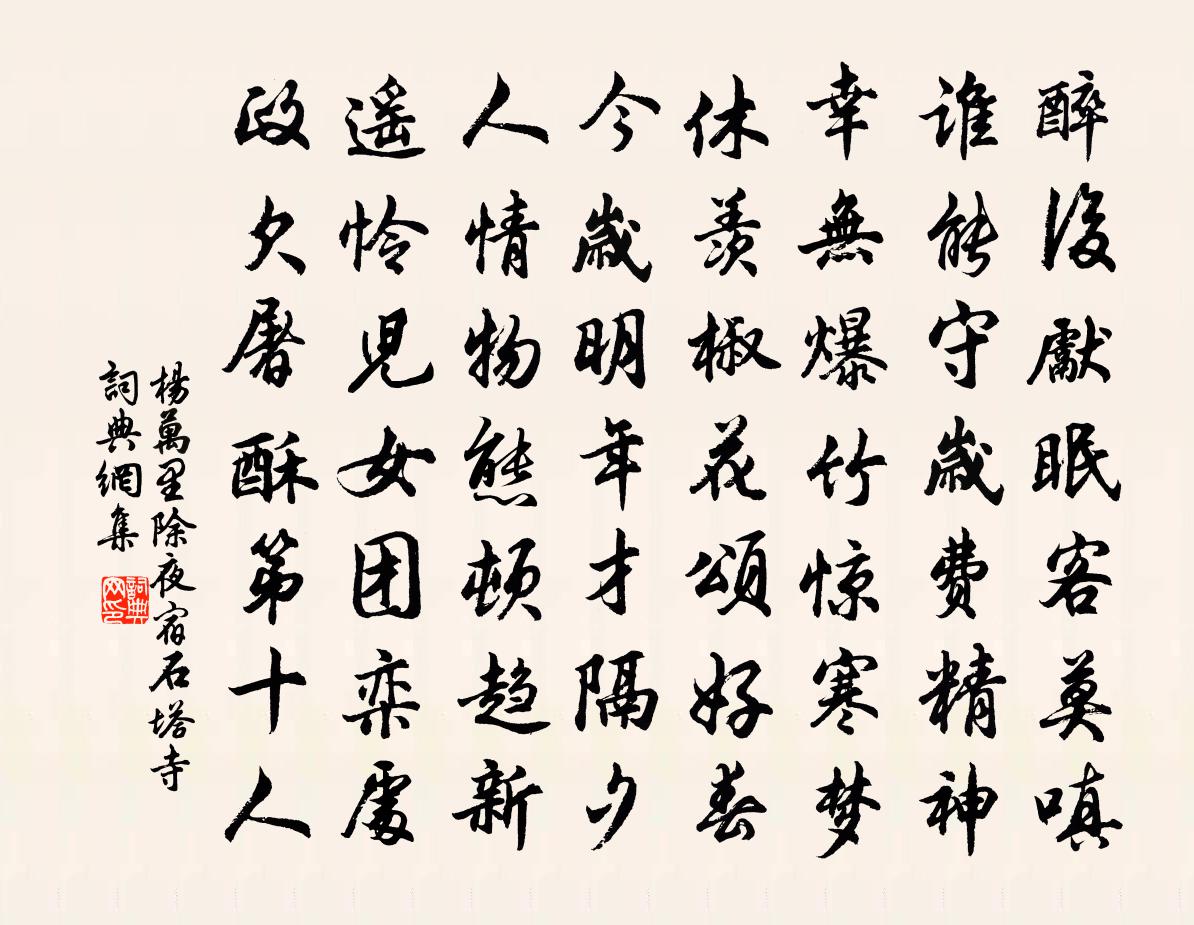 醉後獻眠客莫嗔
谁能守歲費精神
幸無爆竹惊寒梦
休羨椒花頌好春
今歲明年才隔夕
人情物態頓趋新
遥怜児女团栾處
政欠屠酥第十人
楊萬里除夜宿石塔寺
詞典網集
詞典网印